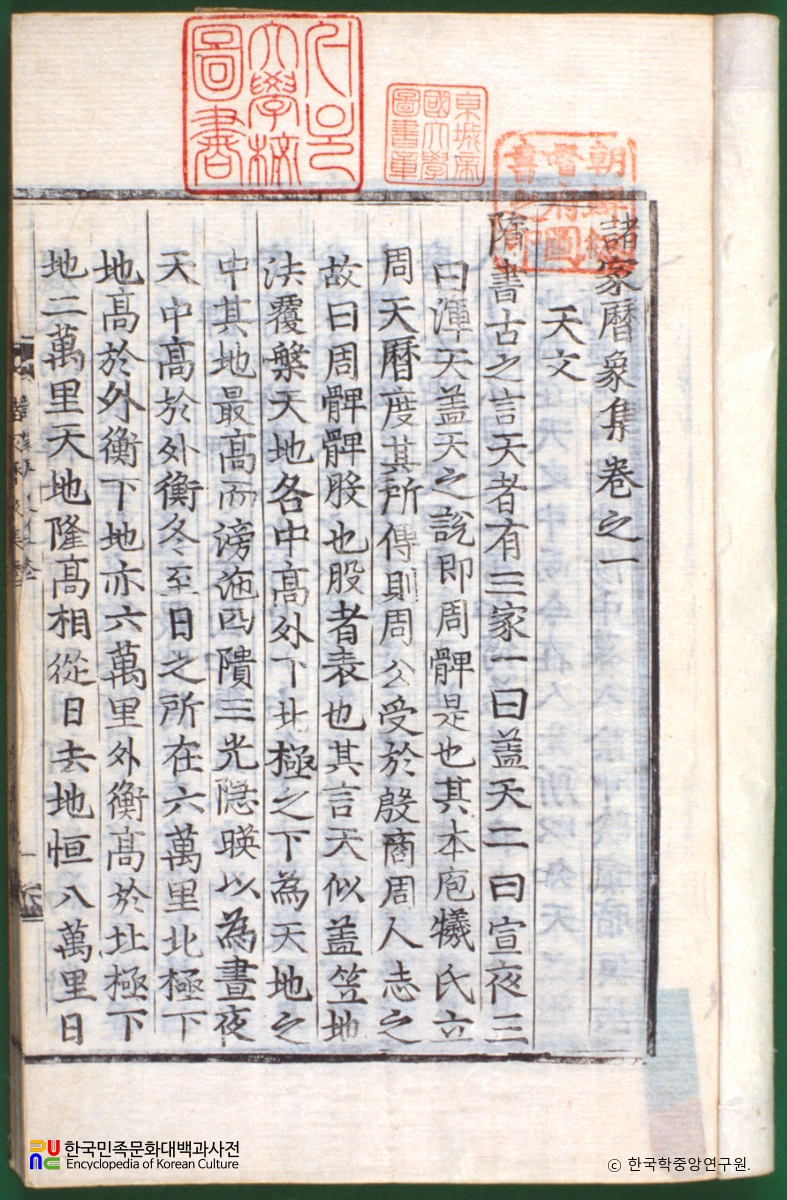 서울大學校圖書
京城帝國大學圖書章
朝鮮總督府圖書之印
諸家曆象集卷之一
天文
隋書古之言天者有三家一曰盖天二曰宣夜三
曰渾天盖天之說即周髀是也其本庖犧氏立
周天曆度其所傳則周公受於殷商周人志之
故曰周髀髀股也股者表也其言天似盖笠地
法覆槃天地各中高外下北極之下為天地之
中其地最高而滂沲四隤三光隐暎以為晝夜
天中高於外衡冬至日之所在六萬里北極下
地高於外衡下地亦六萬里外衡高於北極下
地二萬里天地隆高相從日去地恒八萬里日
한국민족문화대백과사전
Encyclopedia of Korean Culture
© 한국학중앙연구원.